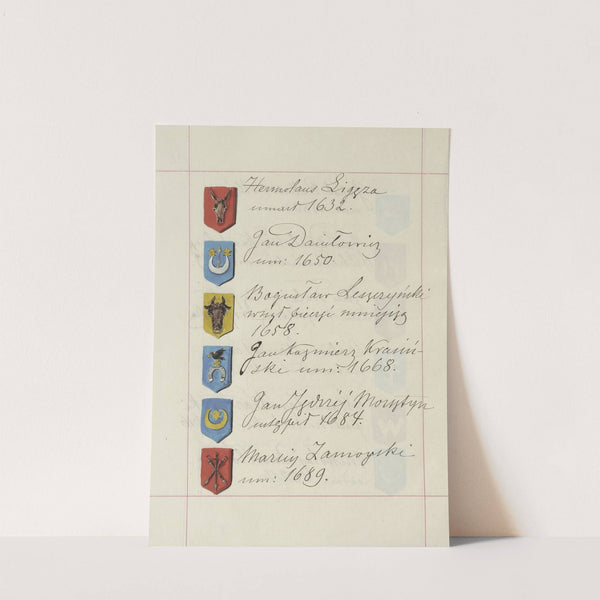 Hermolaus Ligęza
umarł 1632.
Jan Daniłowicz
um: 1650.
Bogusław Leszczyński
wzył. pieczę mniejszą
1658.
Jan Kazimierz Krasiń-
ski um: 1668.
Jan Jędrzéj Morsztyn
1684.
Marcin Zamoyski
um: 1689.